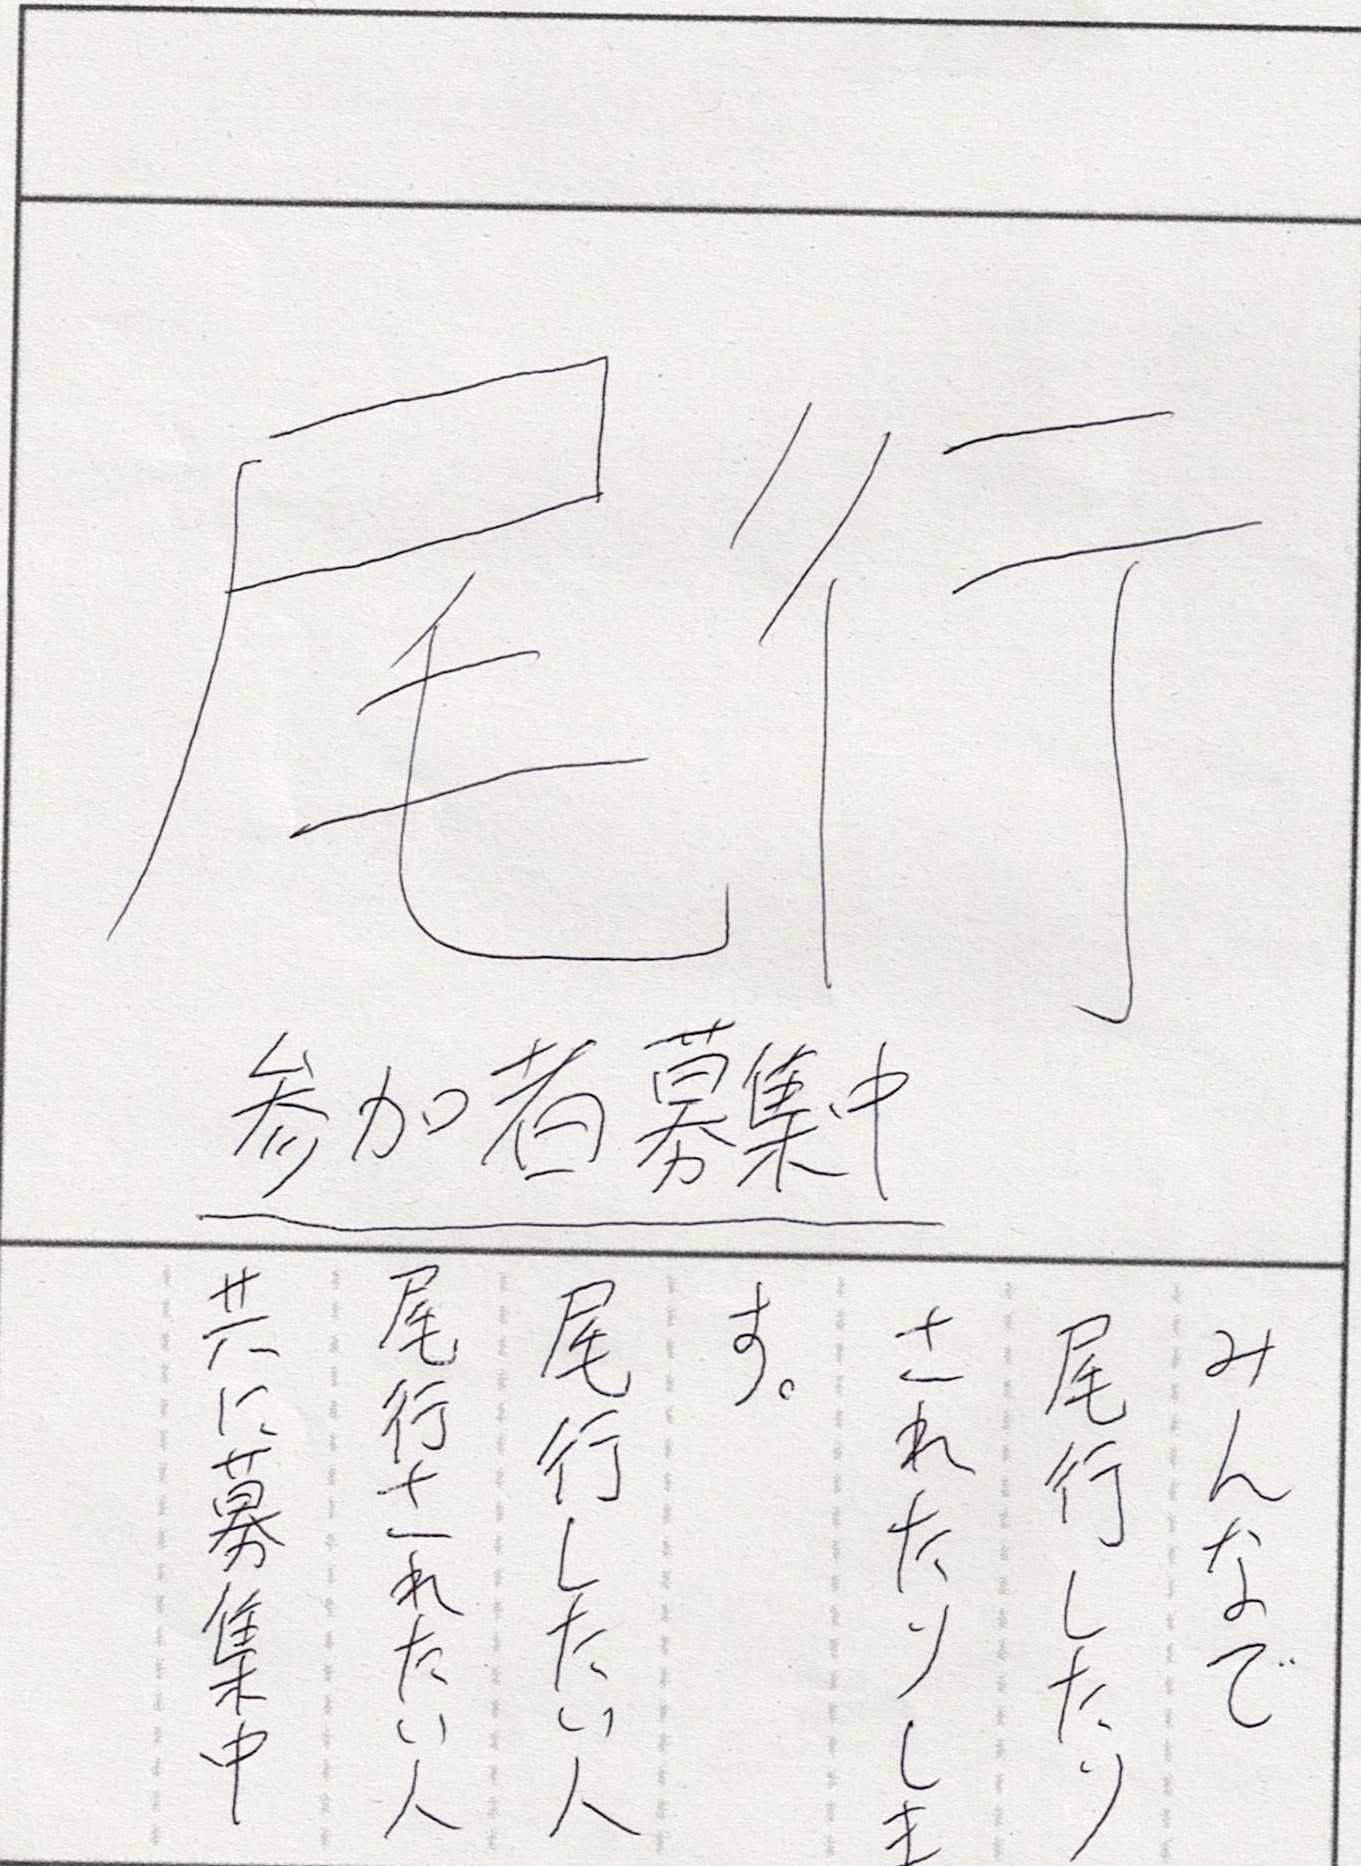 尾行
参加者募集中
みんなで
尾行したり
されたりしま
す。
尾行したい人
尾行されたい人
共に募集中